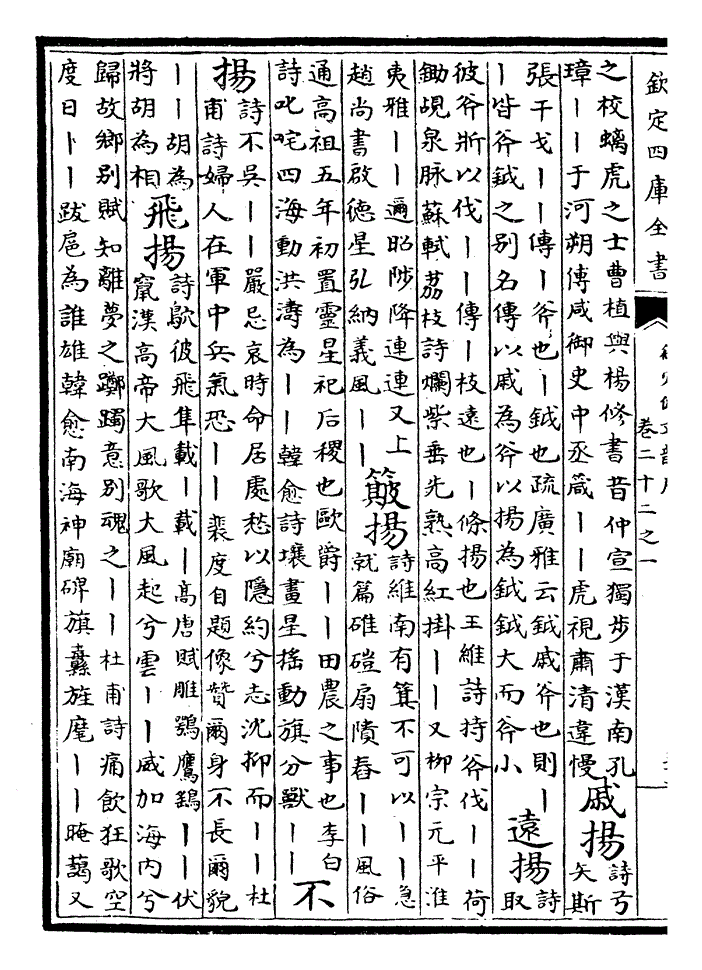 欽定四庫全書
卷二十二之一
之校螭虎之士曹植與楊修書昔仲宣獨步于漢南孔
璋丨丨于河朔傅咸御史中丞箴丨丨虎視肅清違慢
戚揚
詩弓
矢斯
張干戈丨丨傳丨斧也丨鉞也疏廣雅云鉞戚斧也則丨
丨皆斧鉞之别名傳以戚為斧以揚為鉞鉞大而斧小
遠揚
詩
取
彼斧斨以伐丨丨傳丨枝遠也丨條揚也王維詩持斧伐丨丨荷
鋤覘泉脉蘇軾荔枝詩爛紫垂先熟高紅掛丨丨又柳宗元平淮
夷雅丨丨邇昭陟降連連又上
趙尚書啟德星弘納義風丨丨
簸揚
詩維南有箕不可以丨丨急
就篇碓磑扇隤舂丨丨風俗
通高祖五年初置靈星祀后稷也歐爵丨丨田農之事也李白
詩叱咤四海動洪濤為丨丨韓愈詩壤畫星摇動旗分獸丨丨
不
揚
詩不吳丨丨嚴忌哀時命居處愁以隱約兮志沈抑而丨丨杜
甫詩婦人在軍中兵氣恐丨丨裴度自題像贊爾身不長爾貌
丨丨胡為
將胡為相
飛揚
詩鴥彼飛隼載丨載丨高唐賦雕鶚鷹鷂丨丨伏
竄漢高帝大風歌大風起兮雲丨丨威加海内兮
歸故鄉别賦知離夢之躑躅意别魂之丨丨杜甫詩痛飲狂歌空
度日丨丨跋扈為誰雄韓愈南海神廟碑旗纛旌麾丨丨晻藹又